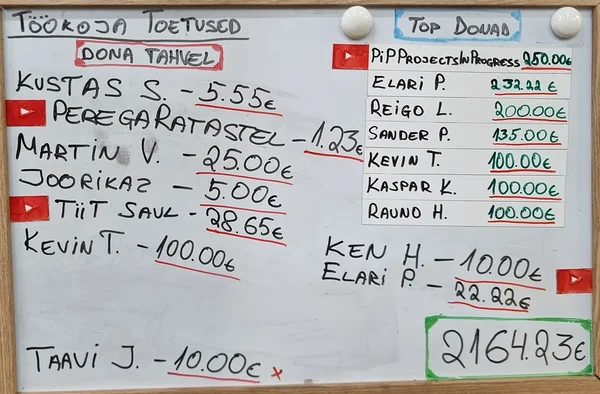 TÖÖKOJA TOETUSED
DONA TAHVEL
KUSTAS S. - 5.55€
PEREGARATASTEL - 1.23€
MARTIN V. - 25.00€
JOORIKAZ - 5.00€
TIIT SAUL - 28.65€
KEVIN T. - 100.00€
TAAVI J. - 10.00€ x
TOP DONAD
PiPPROJECTSINPROGRESS 250.00€
ELARI P. 232.22€
REIGO L. 200.00€
SANDER P. 135.00€
KEVIN T. 100.00€
KASPAR K. 100.00€
RAUNO H. 100.00€
KEN H. - 10.00€
ELARI P. - 22.22€
2164.23€